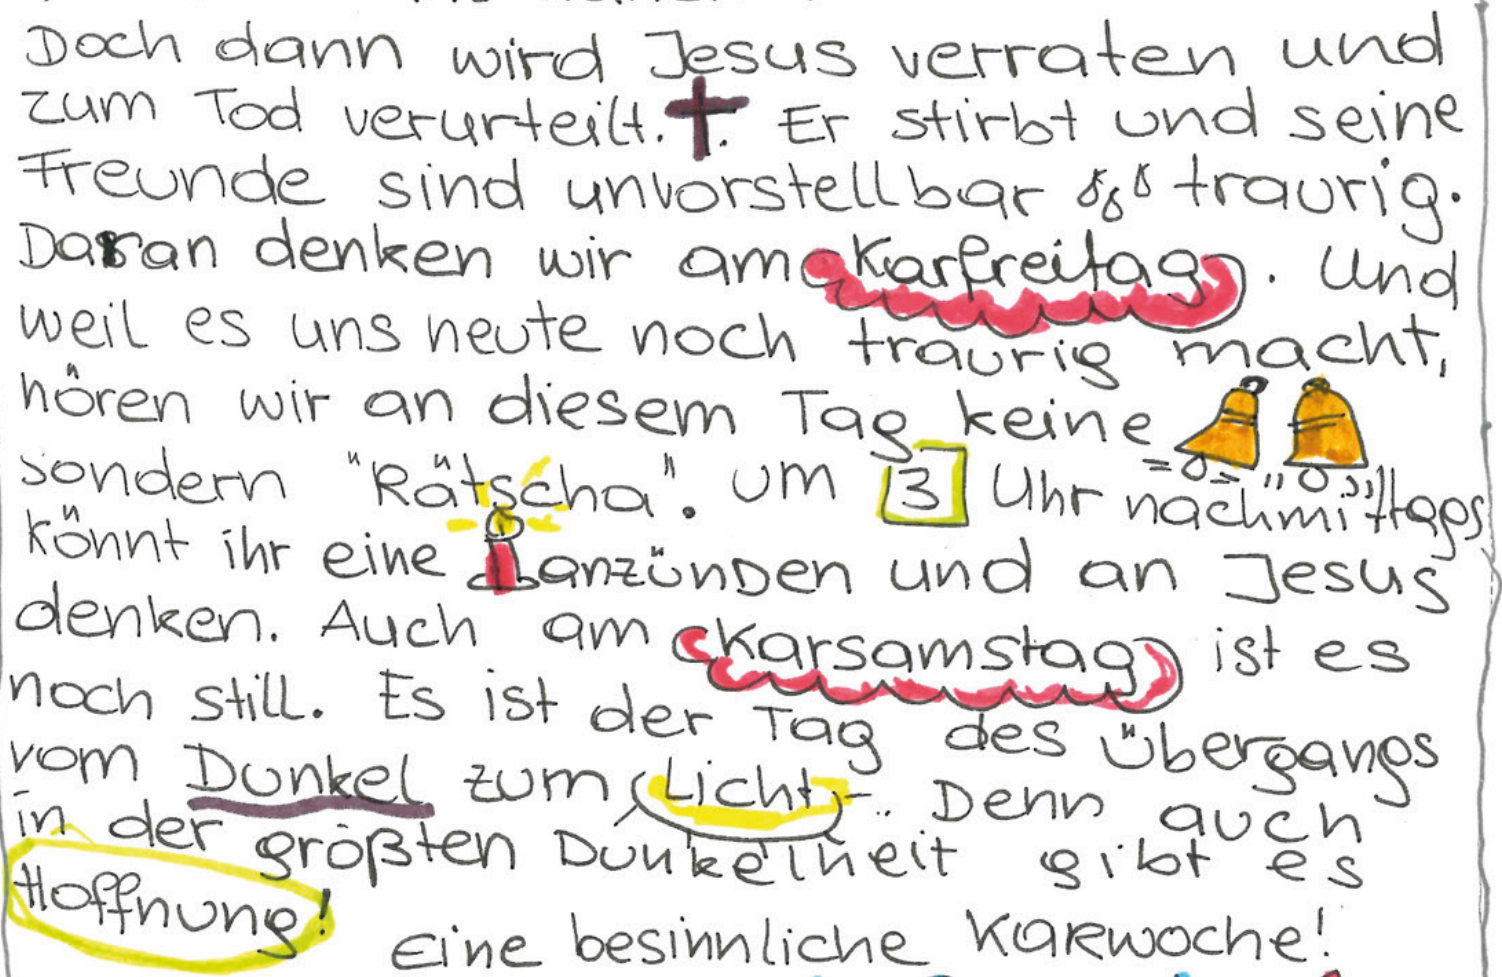 Doch dann wird Jesus verraten und
zum Tod verurteilt. . Er stirbt und seine
Freunde sind unvorstellbar traurig.
Daran denken wir am Karfreitag. Und
weil es uns heute noch traurig macht,
hören wir an diesem Tag keine
sondern "Rätscha". Um 3 Uhr nachmittags
könnt ihr eine anzünden und an Jesus
denken. Auch am Karsamstag ist es
noch still. Es ist der Tag des Übergangs
vom Dunkel zum Licht. Denn auch
in der größten Dunkelheit gibt es
Hoffnung!
Eine besinnliche Karwoche!